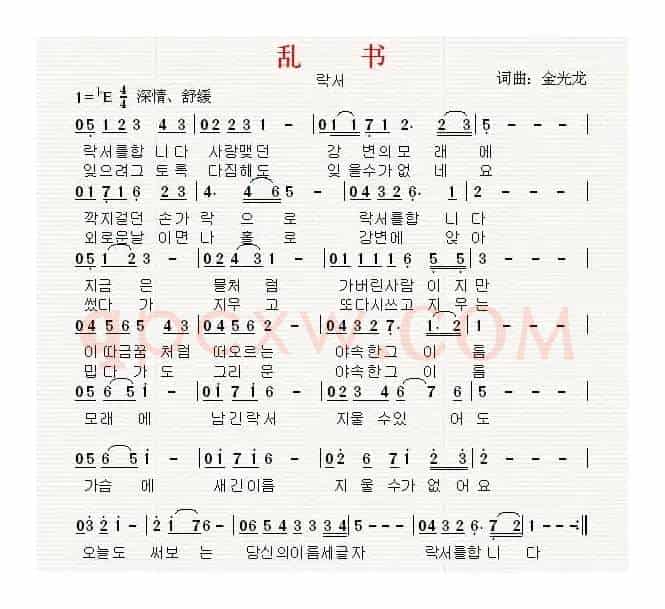 乱 书
락서
词曲：金光龙
1=♭E 4/4 深情、舒缓
05 123 43 | 02231 - | 011712. 23 | 5 - - - |
락서를합 니다 사랑맺던 강 변의모 래 에
잊으려그 토록 다짐해도 잊 을수가없 네 요
01716 23 | 4. 465 - | 04326. 1 | 2 - - - |
깍지걸던 손가 락 으 로 락서를합 니 다
외로운날 이면 나 홀 로 강변에 앉 아
05 123 - | 02431 - | 0111165 53 |
지금 은 뭉쳐 럼 가버린사람 이 지만
썼다 가 지우 고 또다시쓰고 지 우는
04565 43 | 024565 - | 04327. 1.2 | 1 - - - |
이 따금꿈 처럼 떠오르는 야속한그 이 름
밉 다가 도 그리 운 야속한그 이 름
05 651 - | 01716 - | 023467 76 | 5 - - - |
모래 에 남긴락서 지울 수있 어 도
05 651 - | 01716 - | 02 671 23 | 2 - - - |
가슴 에 새긴이름 지 울 수가 없 어 요
0321 - | 2176 - | 0654333334 | 5 - - - | 04326. 72 | 1 - - - :||
오늘도 써보 는 당신의이름세글자 락서를합 니 다
QOCXW.COM